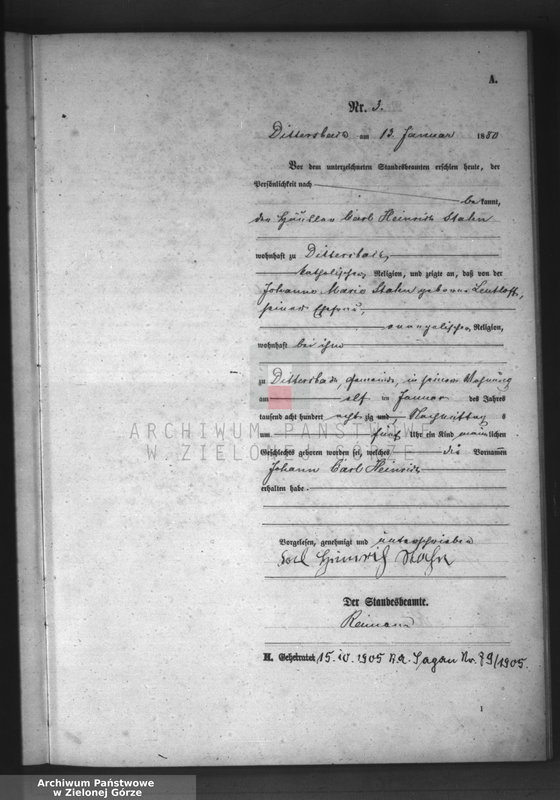 A.
Nr. 3.
Dittersbach am 13. Januar 1880
Vor dem unterzeichneten Standesbeamten erschien heute, der
Persönlichkeit nach
bekannt,
der Häusler Carl Heinrich Stahn
wohnhaft zu Dittersbach,
katholischer Religion, und zeigte an, daß von der
Johanne Maria Stahn geborene Leutloff,
seiner Ehefrau,
evangelischer Religion,
wohnhaft bei ihm
zu Dittersbach, Gemeinde, in seiner Wohnung
am elf ten Januar des Jahres
tausend acht hundert acht zig und Nachmittag s
um fünf Uhr ein Kind männlichen
Geschlechts geboren worden sei, welches die Vornamen
Johann Carl Heinrich
erhalten habe.
Vorgelesen, genehmigt und unterschrieben
Carl Heinrich Stahn
Der Standesbeamte.
Reimann
H. Geheiratet 15. IV. 1905 Sagan Nr. 29/1905.
1
ARCHIWUM PAŃSTWOWE
W ZIELONEJ GÓRZE
Archiwum Państwowe
w Zielonej Górze